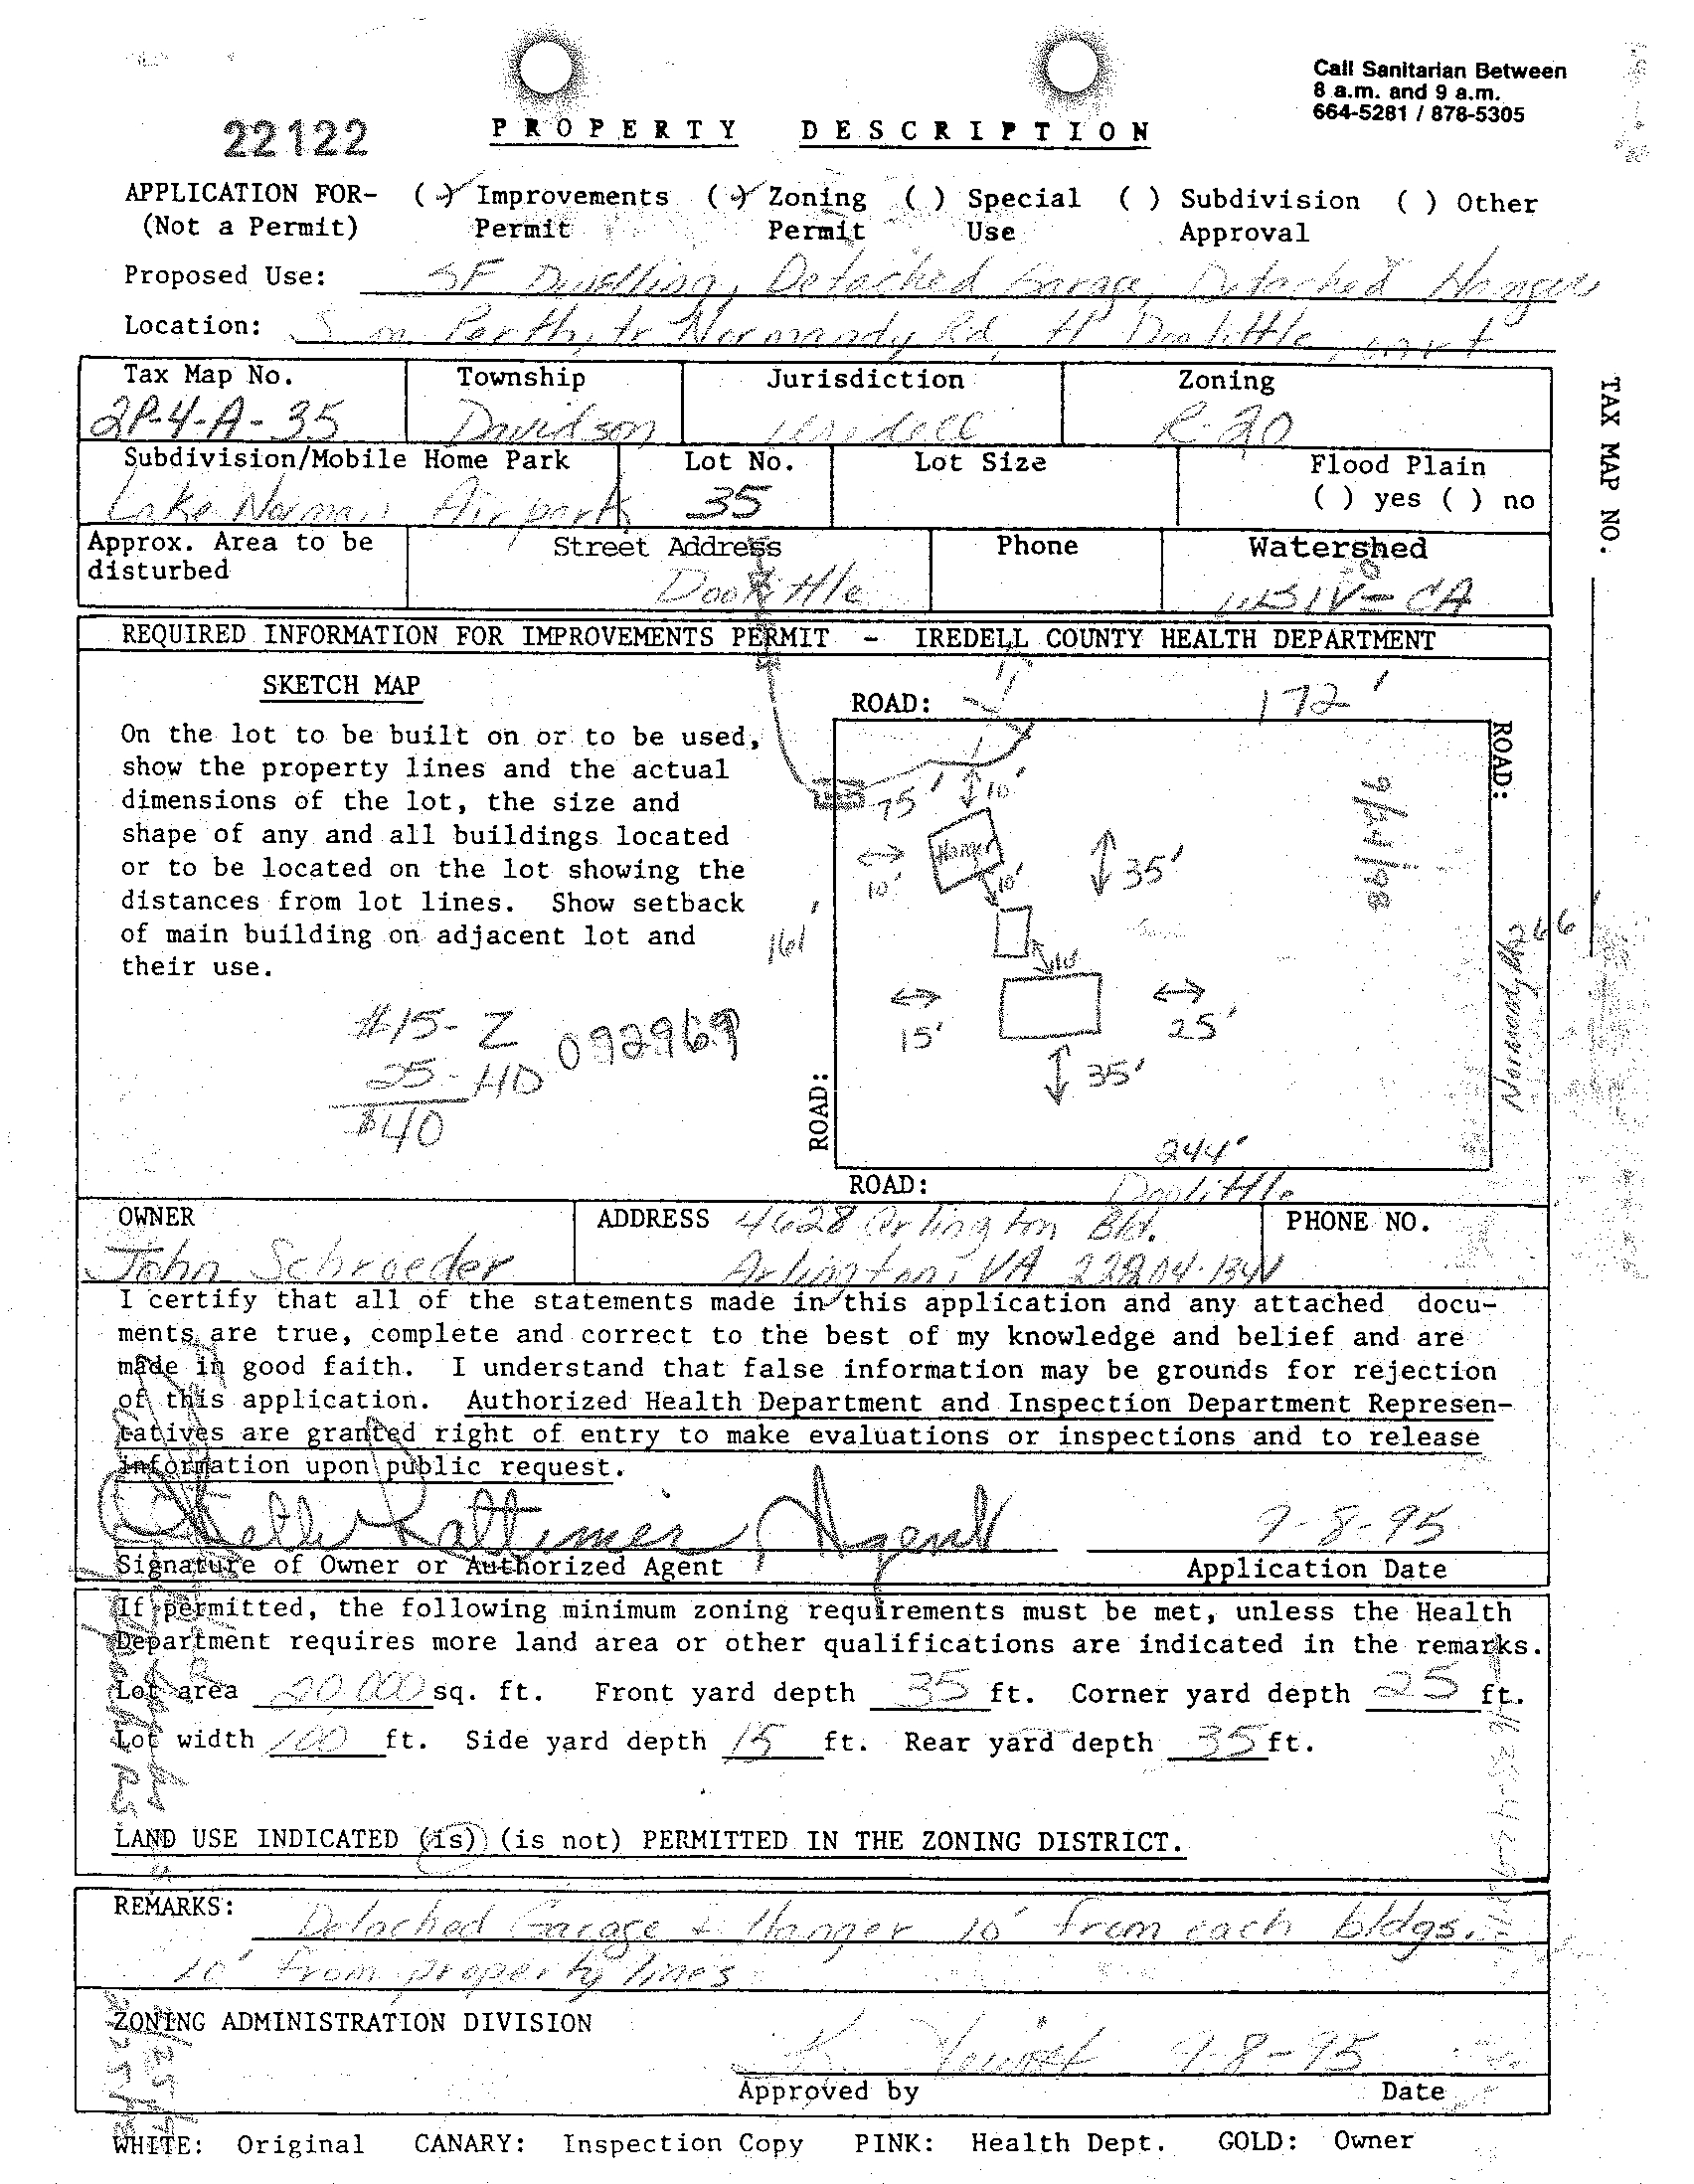 Call Sanitarian Between
8 a.m. and 9 a.m.
664-5281 / 878-5305
22122
PROPERTY DESCRIPTION
APPLICATION FOR- ( ) Improvements ( ) Zoning ( ) Special ( ) Subdivision ( ) Other
(Not a Permit) Permit Permit Use Approval
Proposed Use: SF Dwelling, Detached Garage, Detached Hanger
Location: S on Perth, to Normandy Rd, Doolittle,
Tax Map No. Township Jurisdiction Zoning
2P-4-A-35 Davidson Iredell R-20
Subdivision/Mobile Home Park Lot No. Lot Size Flood Plain
Lake Norman Airpark 35 ( ) yes ( ) no
Approx. Area to be Street Address Phone Watershed
disturbed Doolittle WSIV-CA
REQUIRED INFORMATION FOR IMPROVEMENTS PERMIT - IREDELL COUNTY HEALTH DEPARTMENT
SKETCH MAP
On the lot to be built on or to be used,
show the property lines and the actual
dimensions of the lot, the size and
shape of any and all buildings located
or to be located on the lot showing the
distances from lot lines. Show setback
of main building on adjacent lot and
their use.
#15- Z 092969
25-HD
$40
ROAD: 172'
ROAD:
75' 10'
Hanger
10' 10' 35'
161'
10'
15' 25'
35'
266'
Normandy Rd
ROAD:
244'
ROAD: Doolittle
TAX MAP NO.
OWNER ADDRESS 4628 Arlington Bld. PHONE NO.
John Schroeder Arlington, VA
I certify that all of the statements made in this application and any attached docu-
ments are true, complete and correct to the best of my knowledge and belief and are
made in good faith. I understand that false information may be grounds for rejection
of this application. Authorized Health Department and Inspection Department Represen-
tatives are granted right of entry to make evaluations or inspections and to release
information upon public request.
Lattimer, Agent 9-8-95
Signature of Owner or Authorized Agent Application Date
If permitted, the following minimum zoning requirements must be met, unless the Health
Department requires more land area or other qualifications are indicated in the remarks.
Lot area 20,000 sq. ft. Front yard depth 35 ft. Corner yard depth 25 ft.
Lot width 100 ft. Side yard depth 15 ft. Rear yard depth 35 ft.
LAND USE INDICATED (is) (is not) PERMITTED IN THE ZONING DISTRICT.
REMARKS: Detached Garage & Hanger 10' from each bldgs.
10' from property lines
ZONING ADMINISTRATION DIVISION
K. 9-8-95
Approved by Date
WHITE: Original CANARY: Inspection Copy PINK: Health Dept. GOLD: Owner